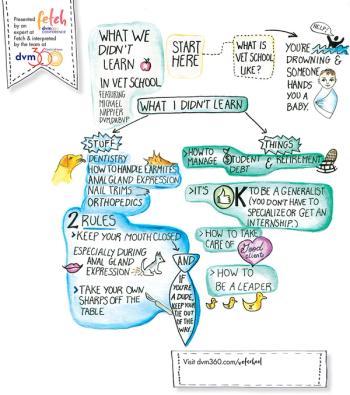 Presented
by an
expert at
Fetch & interpreted
by the team at
fetch
dvm360
CONFERENCE
dvm360
WHAT WE
DIDN'T
LEARN
IN VET SCHOOL
FEATURING
MICHAEL
NAPPIER
DVM,DABVP
START
HERE
WHAT IS
VET SCHOOL
LIKE?
HELP!
YOU'RE
DROWNING &
SOMEONE
HANDS
YOU A
BABY.
WHAT I DIDN'T LEARN
STUFF
DENTISTRY
HOW TO HANDLE EARMITES
ANAL GLAND EXPRESSION
NAIL TRIMS
ORTHOPEDICS
2 RULES
>KEEP YOUR MOUTH CLOSED
ESPECIALLY DURING
ANAL GLAND
EXPRESSION
>TAKE YOUR OWN
SHARPS OFF THE
TABLE
AND
IF
YOU'RE
A DUDE,
KEEP YOUR
TIE OUT
OF THE
WAY.
THINGS
>HOW TO
MANAGE STUDENT & RETIREMENT
DEBT
>IT'S OK TO BE A GENERALIST
(YOU DON'T HAVE TO
SPECIALIZE OR GET AN
INTERNSHIP.)
>HOW TO TAKE
CARE OF Good
clients
>HOW TO
BE A LEADER
Visit dvm360.com/vetschool